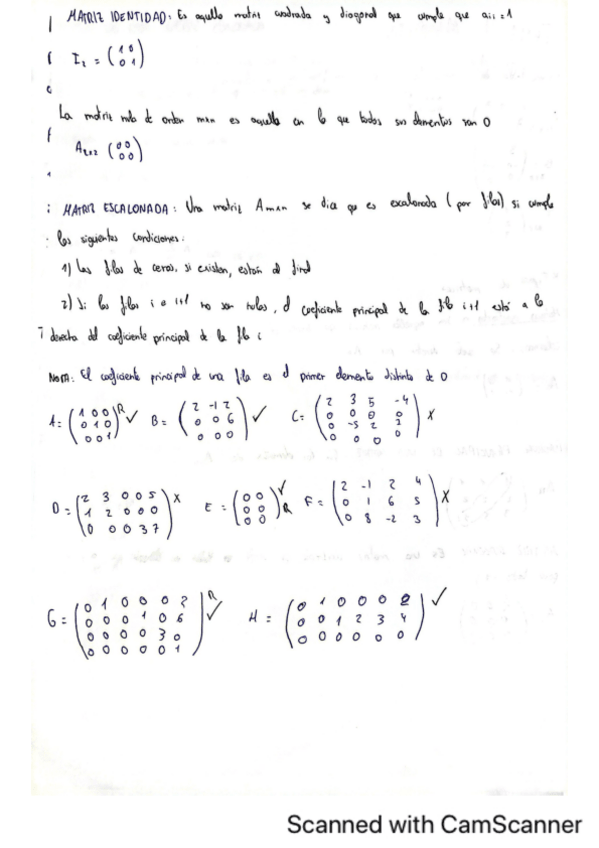 MATRIZ IDENTIDAD: Es aquella matriz cuadrada y diagonal que cumple que aii = 1
I₂ = (1 0
0 1)
La matriz nula de orden mxn es aquella en la que todos sus elementos son 0
A₂ₓ₂ (0 0
0 0)
MATRIZ ESCALONADA: Una matriz Amxn se dice que es escalonada (por filas) si cumple
las siguientes condiciones:
1) Las filas de ceros, si existen, están al final
2) Si las filas i e i+1 no son nulas, el coeficiente principal de la fila i+1 está a la
derecha del coeficiente principal de la fila i
NOTA: El coeficiente principal de una fila es el primer elemento distinto de 0
A = (1 0 0 R ✓ B = (2 -1 2 ✓ C = (2 3 5 -4 X
0 1 0 0 0 6 0 0 0 0
0 0 1) 0 0 0) 0 -5 2 2
0 0 0 0)
D = (2 3 0 0 5 X E = (0 0 ✓ R F = (2 -1 2 4 X
1 2 0 0 0 0 0 0 1 6 5
0 0 0 3 7) 0 0) 0 8 -2 3)
G = (0 1 0 0 0 2 R ✓ H = (0 1 0 0 0 2 ✓
0 0 0 1 0 6 0 0 1 2 3 4
0 0 0 0 3 0 0 0 0 0 0 0)
0 0 0 0 0 1)
Scanned with CamScanner